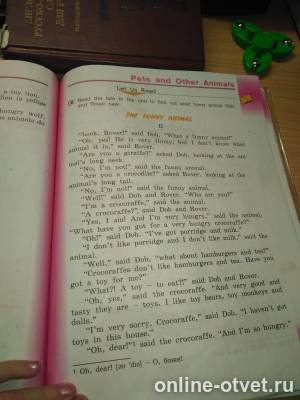 Pets and Other Animals
Let Us Read
Read the tale to the end to find out what funny animal Dob
and Rover saw.
THE FUNNY ANIMAL
II
"Look, Rover!" said Dob, "What a funny animal!"
"Oh, yes! He is very funny, but I don't know what
animal it is," said Rover.
"Are you a giraffe?" asked Dob, looking at the ani-
mal's long neck.
"No, I'm not!" said the funny animal.
"Are you a crocodile?" asked Rover, looking at the
animal's long tail.
"No, I'm not!" said the funny animal.
"Well!" said Dob and Rover. "Who are you?"
"I'm a crocoraffe," said the animal.
"A crocoraffe?", said Dob and Rover.
"Yes, I am! And I'm very hungry," said the animal.
"What have you got for a very hungry crocoraffe?"
"Oh!" said Dob. "I've got porridge and milk."
"I don't like porridge and I don't like milk," said the
animal.
"Well," said Dob, "what about hamburgers and tea?"
"Crocoraffes don't like hamburgers and tea. Have you
got a toy for me?"
"What?! A toy – to eat?!" said Dob and Rover.
"Oh, yes," said the crocoraffe. "And very good and
tasty they are – toys. I like toy bears, toy monkeys and
dolls."
"I'm very sorry, Crocoraffe," said Dob, "I haven't got
toys in this house."
"Oh, dear!¹" said the crocoraffe. "And I'm so hungry."
¹ Oh, dear! – О, боже!
a toy lion.
hungry wolf.
animals do
online-otvet.ru